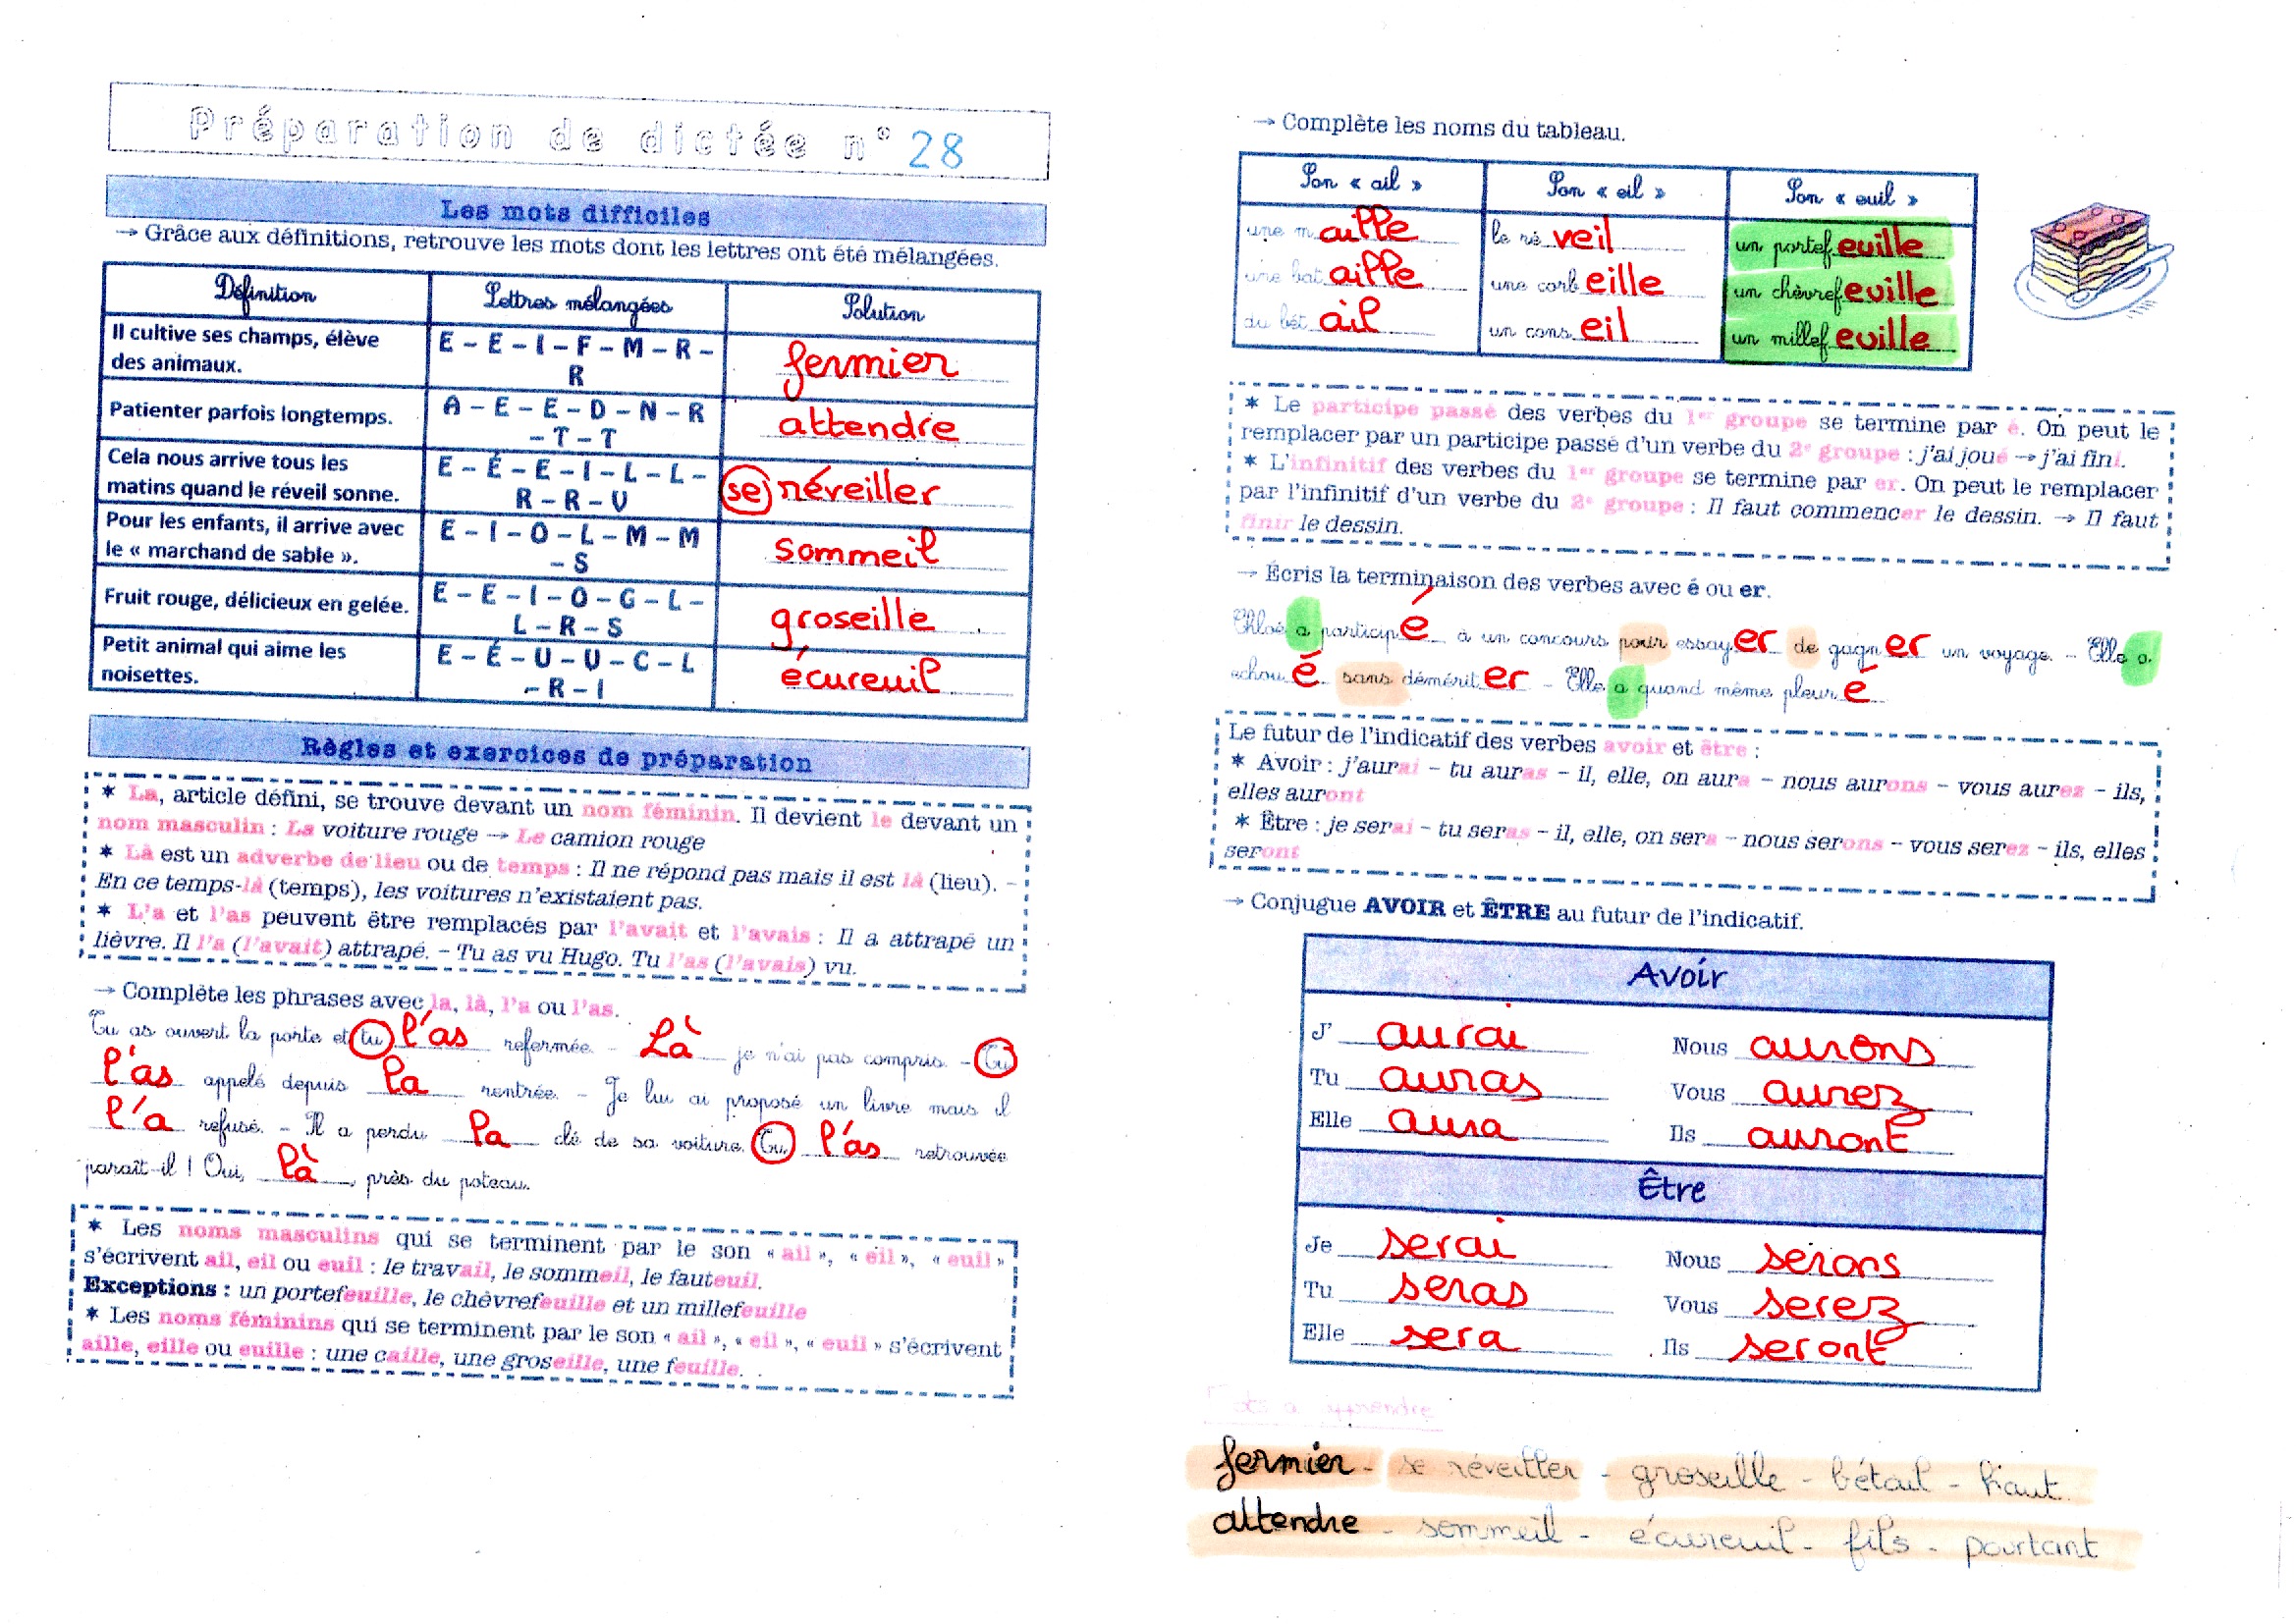 Préparation de dictée n° 28
Les mots difficiles
→ Grâce aux définitions, retrouve les mots dont les lettres ont été mélangées.
Définition
Lettres mélangées
Solution
Il cultive ses champs, élève
des animaux.
E – E – I – F – M – R –
R
fermier
Patienter parfois longtemps.
A – E – E – D – N – R
– T – T
attendre
Cela nous arrive tous les
matins quand le réveil sonne.
E – É – E – I – L – L –
R – R – V
se réveiller
Pour les enfants, il arrive avec
le « marchand de sable ».
E – I – O – L – M – M
– S
sommeil
Fruit rouge, délicieux en gelée.
E – E – I – O – G – L –
L – R – S
groseille
Petit animal qui aime les
noisettes.
E – É – U – U – C – L
– R – I
écureuil
Règles et exercices de préparation
* La, article défini, se trouve devant un nom féminin. Il devient le devant un
nom masculin : La voiture rouge → Le camion rouge
* Là est un adverbe de lieu ou de temps : Il ne répond pas mais il est là (lieu). –
En ce temps-là (temps), les voitures n'existaient pas.
* L'a et l'as peuvent être remplacés par l'avait et l'avais : Il a attrapé un
lièvre. Il l'a (l'avait) attrapé. – Tu as vu Hugo. Tu l'as (l'avais) vu.
→ Complète les phrases avec la, là, l'a ou l'as.
Tu as ouvert la porte et tu l'as refermée. – Là je n'ai pas compris. – Tu
l'as appelé depuis la rentrée. – Je lui ai proposé un livre mais il
l'a refusé. – Il a perdu la clé de sa voiture. Tu l'as retrouvée
paraît-il ! Oui, là, près du poteau.
* Les noms masculins qui se terminent par le son « ail », « eil », « euil »
s'écrivent ail, eil ou euil : le travail, le sommeil, le fauteuil.
Exceptions : un portefeuille, le chèvrefeuille et un millefeuille
* Les noms féminins qui se terminent par le son « ail », « eil », « euil » s'écrivent
aille, eille ou euille : une caille, une groseille, une feuille.
→ Complète les noms du tableau.
Son « ail »
Son « eil »
Son « euil »
une maille
le réveil
un portefeuille
une bataille
une corbeille
un chèvrefeuille
du bétail
un conseil
un millefeuille
* Le participe passé des verbes du 1er groupe se termine par é. On peut le
remplacer par un participe passé d'un verbe du 2e groupe : j'ai joué → j'ai fini.
* L'infinitif des verbes du 1er groupe se termine par er. On peut le remplacer
par l'infinitif d'un verbe du 2e groupe : Il faut commencer le dessin. → Il faut
finir le dessin.
→ Écris la terminaison des verbes avec é ou er.
Chloé a participé à un concours pour essayer de gagner un voyage. – Elle a
échoué sans démériter – Elle a quand même pleuré
Le futur de l'indicatif des verbes avoir et être :
* Avoir : j'aurai – tu auras – il, elle, on aura – nous aurons – vous aurez – ils,
elles auront
* Être : je serai – tu seras – il, elle, on sera – nous serons – vous serez – ils, elles
seront
→ Conjugue AVOIR et ÊTRE au futur de l'indicatif.
Avoir
J' aurai Nous aurons
Tu auras Vous aurez
Elle aura Ils auront
Être
Je serai Nous serons
Tu seras Vous serez
Elle sera Ils seront
Mots à apprendre
fermier - se réveiller - groseille - bétail - haut
attendre - sommeil - écureuil - fils - pourtant